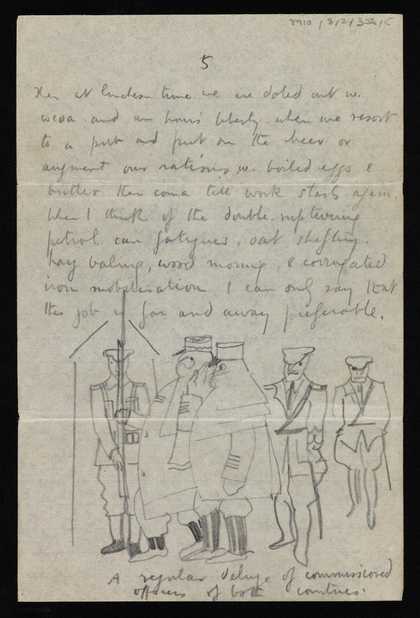 5
at time we are doled out w.
cocoa and an hours liberty when we resort
to a pub and put on the beer or
augment our rations w. boiled eggs &
butter then coma till work starts again.
When I think of the double
petrol can fatigues, oat shifting,
hay baling, wood moving, & corrugated
iron I can only say that
this job is far and away preferable.
A regular deluge of commissioned
officers of both countries.